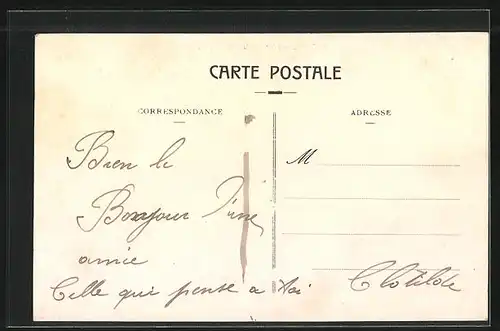 CARTE POSTALE
CORRESPONDANCE
ADRESSE
M
Bien le
Bonjour d'une
amie
Celle qui pense a toi
Clotilde